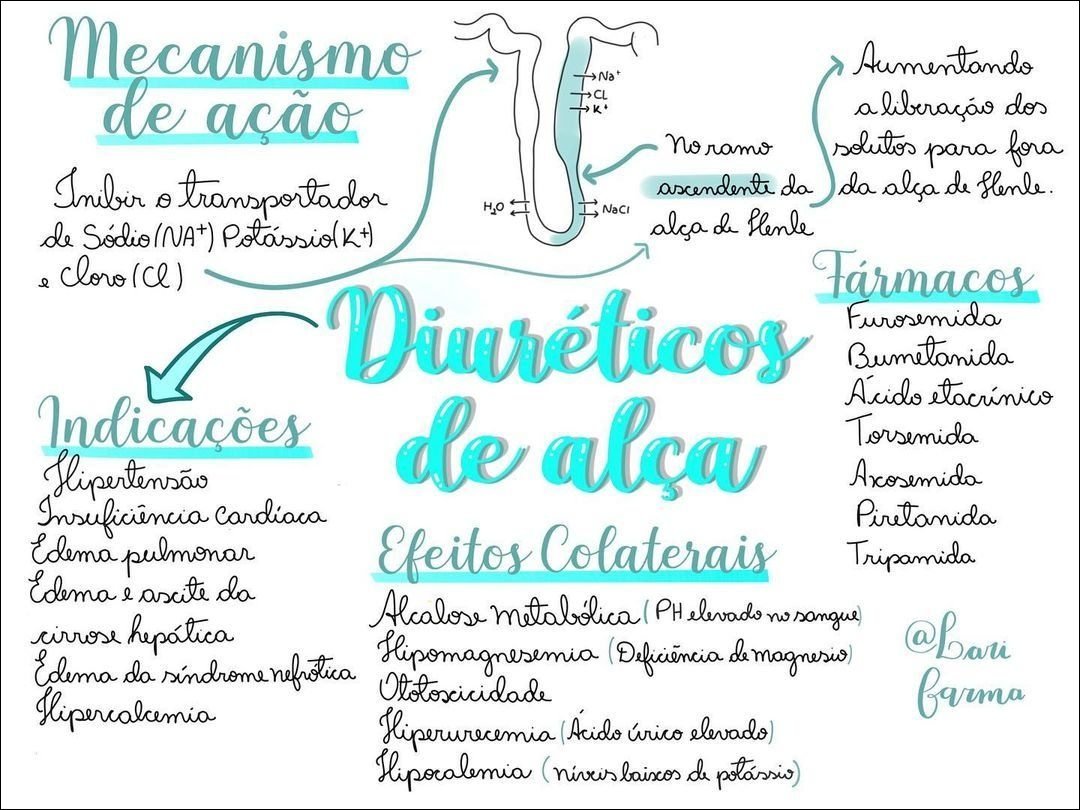 Mecanismo
de ação
Inibir o transportador
de Sódio (NA+) Potássio (K+)
e Cloro (Cl)
Na+
Cl
K+
H2O
NaCl
No ramo
ascendente da
alça de Henle
Aumentando
a liberação dos
solutos para fora
da alça de Henle.
Diuréticos
de alça
Fármacos
Furosemida
Bumetanida
Ácido etacrínico
Torsemida
Axosemida
Piretanida
Tripamida
Indicações
Hipertensão
Insuficiência Cardíaca
Edema pulmonar
Edema e ascite da
cirrose hepática
Edema da síndrome nefrótica
Hipercalcemia
Efeitos Colaterais
Alcalose metabólica (PH elevado no sangue)
Hipomagnesemia (Deficiência de magnesio)
Ototoxicidade
Hiperurecemia (Ácido úrico elevado)
Hipocalemia (níveis baixos de potássio)
@Lari
farma